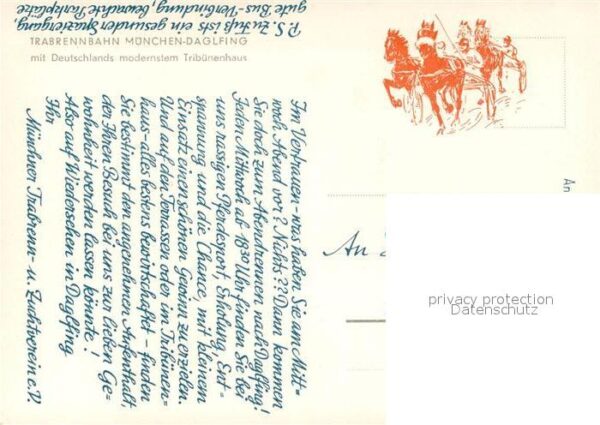 P.S. Zu Fuß ists ein gesunder Spaziergang,
gute Bus-Verbindung, bewachte Parkplätze
TRABRENNBAHN MÜNCHEN-DAGLFING
mit Deutschlands modernstem Tribünenhaus
Im Vertrauen - was haben Sie am Mitt=
woch Abend vor? Nichts?? Dann kommen
Sie doch zum Abendrennen nach Daglfing!
Jeden Mittwoch ab 18³⁰ Uhr finden Sie bei
uns rassigen Pferdesport, Erholung, Ent=
spannung und die Chance, mit kleinem
Einsatz einen schönen Gewinn zu erzielen.
Und auf den Terrassen oder im Tribünen=
haus - alles bestens bewirtschaftet - finden
Sie bestimmt den angenehmen Aufenthalt,
der Ihren Besuch bei uns zur lieben Ge=
wohnheit werden lassen könnte!
Also auf Wiedersehen in Daglfing
Ihr
Münchner Trabrenn- u. Zuchtverein e.V.
An
An
privacy protection
Datenschutz